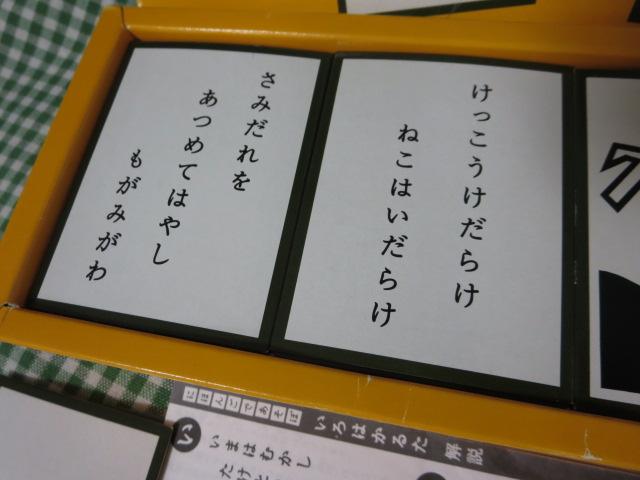 けっこうけだらけ
ねこはいだらけ
さみだれを
あつめてはやし
もがみがわ
にほんごであそぼ
いろはかるた 解説
い
いまはむかし